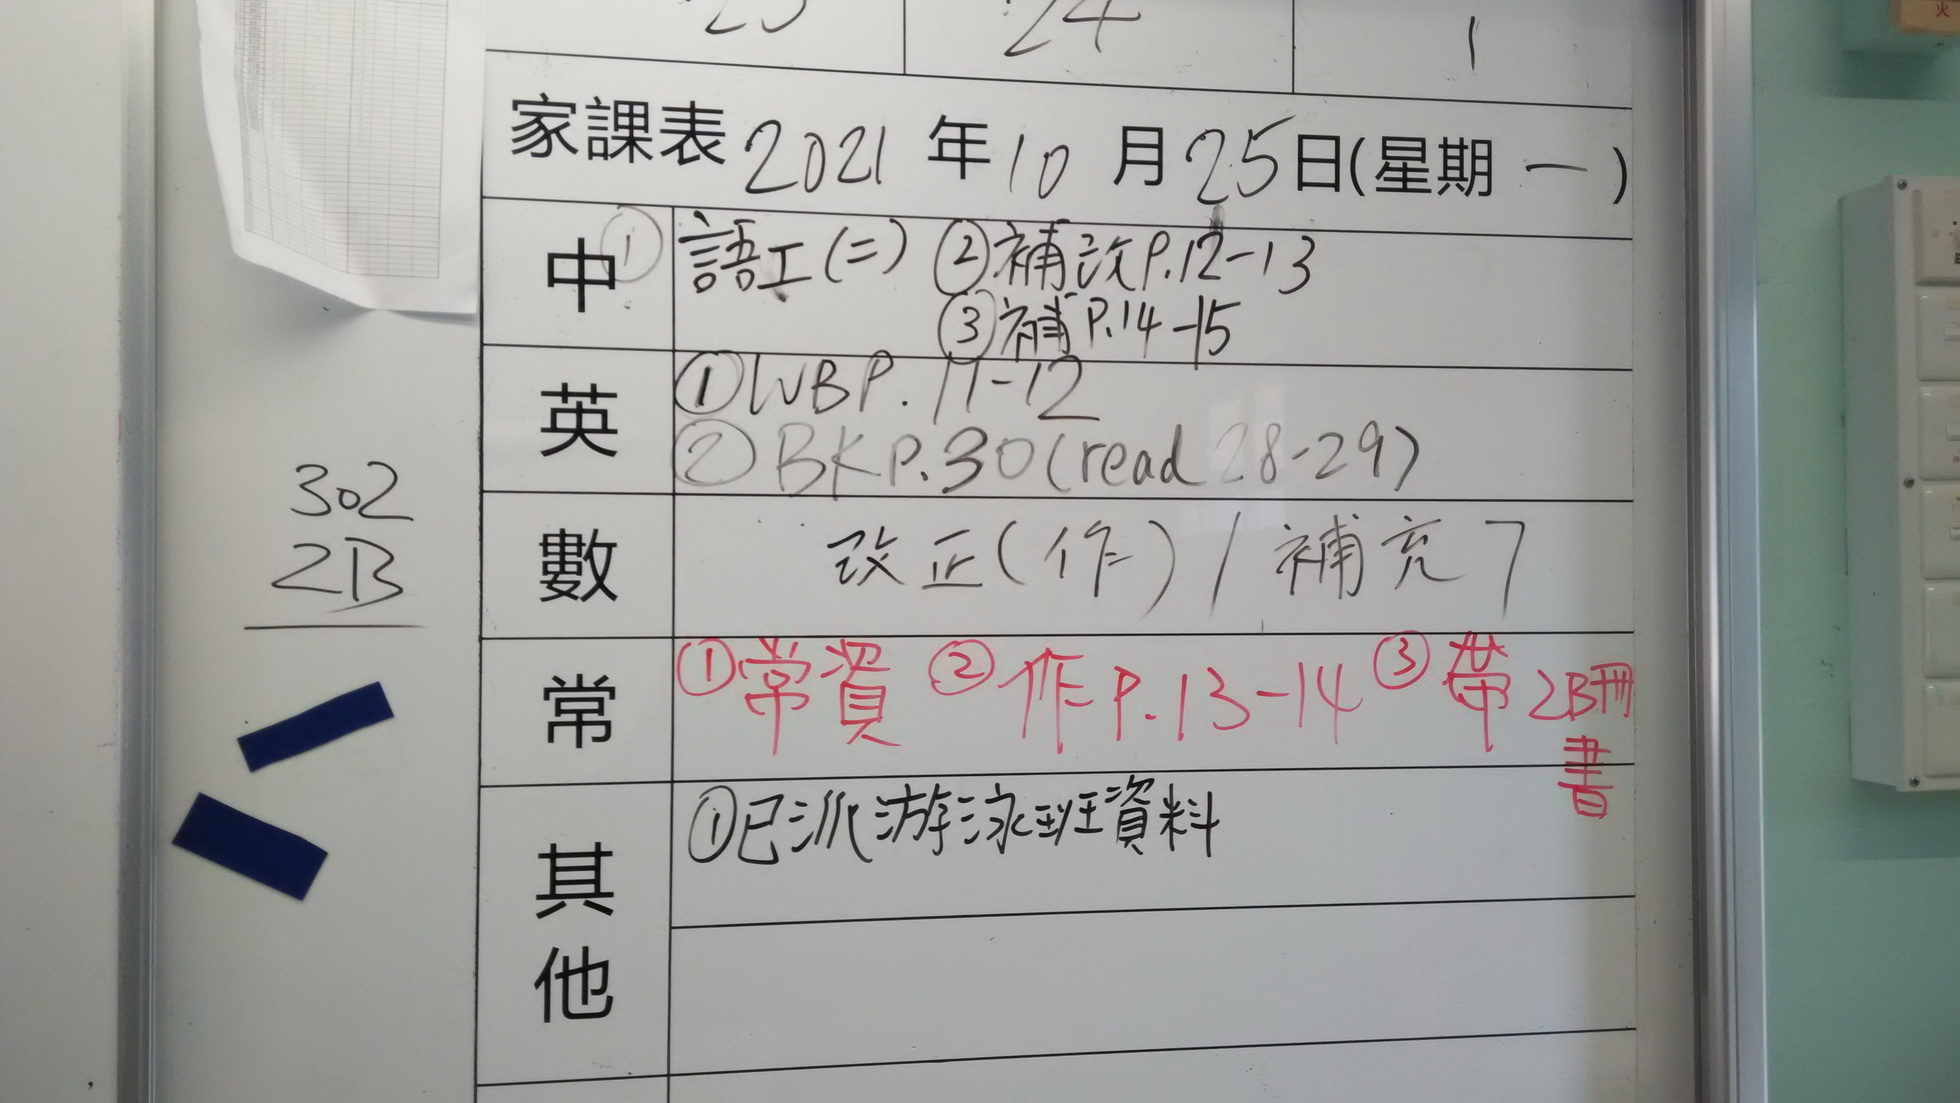 23 24 1
家課表 2021 年 10 月 25 日(星期 一 )
中 ① 語工(二) ② 補改P.12-13
③ 補 P.14-15
英 ① WB P. 11-12
② BK P.30 (read 28-29)
302
2B
數 改正(作) / 補充7
常 ① 常資 ② 作 P.13-14 ③ 帶 2B冊
書
其他 ① 已派游泳班資料
火